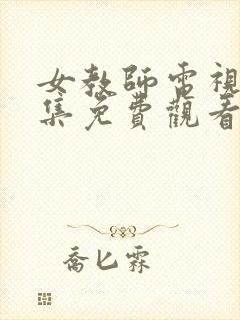 女教師電視
集免費觀看
喬匕霖